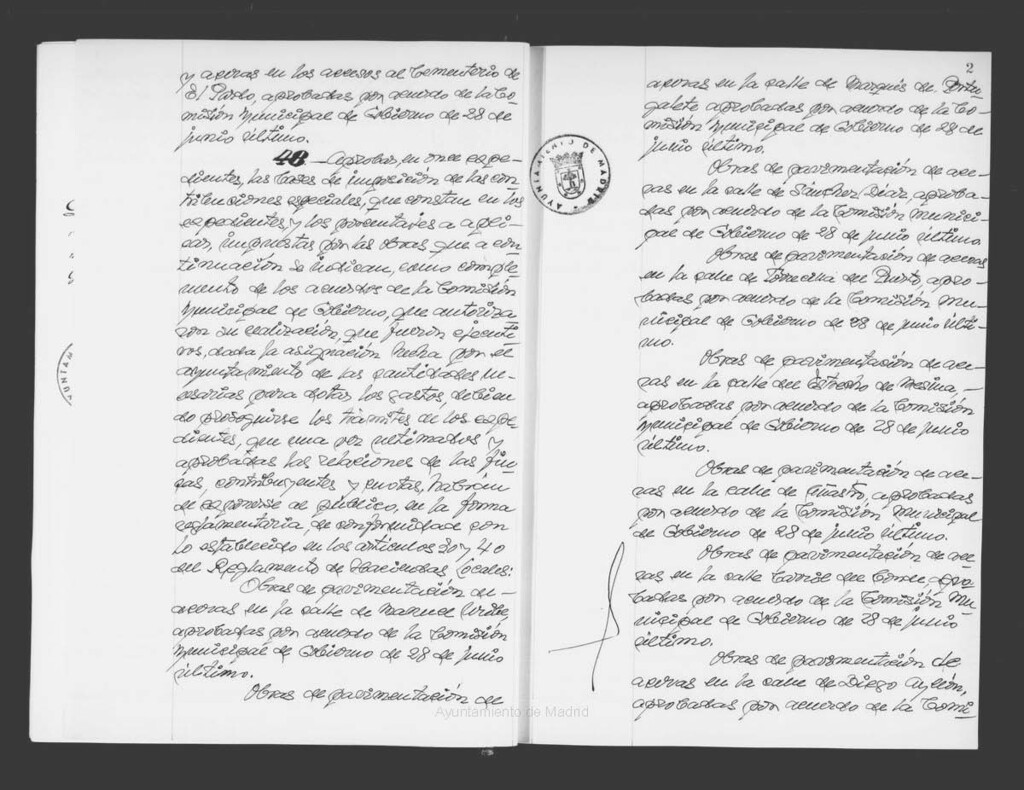 y aceras en los accesos al Cementerio de
El Pardo, aprobadas por acuerdo de la Co-
misión Municipal de Gobierno de 28 de
junio último.
48 - Aprobar, en once expe-
dientes, las bases de imposición de las con-
tribuciones especiales, que constan en los
expedientes y los porcentajes a apli-
car, impuestas por las obras que a con-
tinuación se indican, como comple-
mento de los acuerdos de la Comisión
Municipal de Gobierno, que autoriza-
ron su realización, que fueron ejecuti-
vos, dada la asignación hecha por el
Ayuntamiento de las cantidades ne-
cesarias para dotar los gastos, debien-
do proseguirse los trámites de los expe-
dientes, que una vez ultimados y
aprobadas las relaciones de las fin-
cas, contribuyentes y cuotas, habrán
de exponerse al público, en la forma
reglamentaria, de conformidad con
lo establecido en los artículos 30 y 40
del Reglamento de Haciendas Locales:
Obras de pavimentación de
aceras en la calle de Manuel Uribe,
aprobadas por acuerdo de la Comisión
Municipal de Gobierno de 28 de junio
último.
Obras de pavimentación de
2
aceras en la calle de Marqués de Portu-
galete, aprobadas por acuerdo de la Co-
misión Municipal de Gobierno de 28 de
junio último.
Obras de pavimentación de ace-
ras en la calle de Sánchez Díaz, aproba-
das por acuerdo de la Comisión Munici-
pal de Gobierno de 28 de junio último.
Obras de pavimentación de aceras
en la calle de Torrecilla del Puerto, apro-
badas por acuerdo de la Comisión Mu-
nicipal de Gobierno de 28 de junio últi-
mo.
Obras de pavimentación de ace-
ras en la calle del Estrecho de Mesina,
aprobadas por acuerdo de la Comisión
Municipal de Gobierno de 28 de junio
último.
Obras de pavimentación de ace-
ras en la calle de, aprobadas
por acuerdo de la Comisión Municipal
de Gobierno de 28 de junio último.
Obras de pavimentación de ace-
ras en la calle Carril del Conde, apro-
badas por acuerdo de la Comisión Mu-
nicipal de Gobierno de 28 de junio
último.
Obras de pavimentación de
aceras en la calle de Diego Ayllón,
aprobadas por acuerdo de la Comi-
AYUNTAMIENTO DE MADRID
Ayuntamiento de Madrid